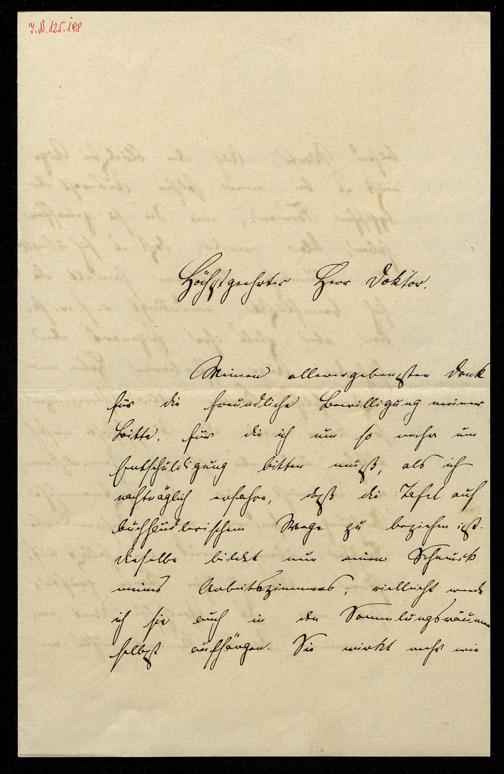 I.N. 125.198
Höchstgeehrter Herr Doktor.
Meinen allerergebensten Dank
für die freundliche Bewilligung meiner
Bitte, für die ich um so mehr um
Entschuldigung bitten muß, als ich
nachträglich erfahre, daß die Tafel auf
buchhändlerischem Wege zu beziehen ist.
Dieselbe bildet nun einen Schmuck
meines Arbeitszimmers; vielleicht werde
ich sie auch in den Sammlungsräumen
selbst aufhängen. Sie wirkt mehr wie